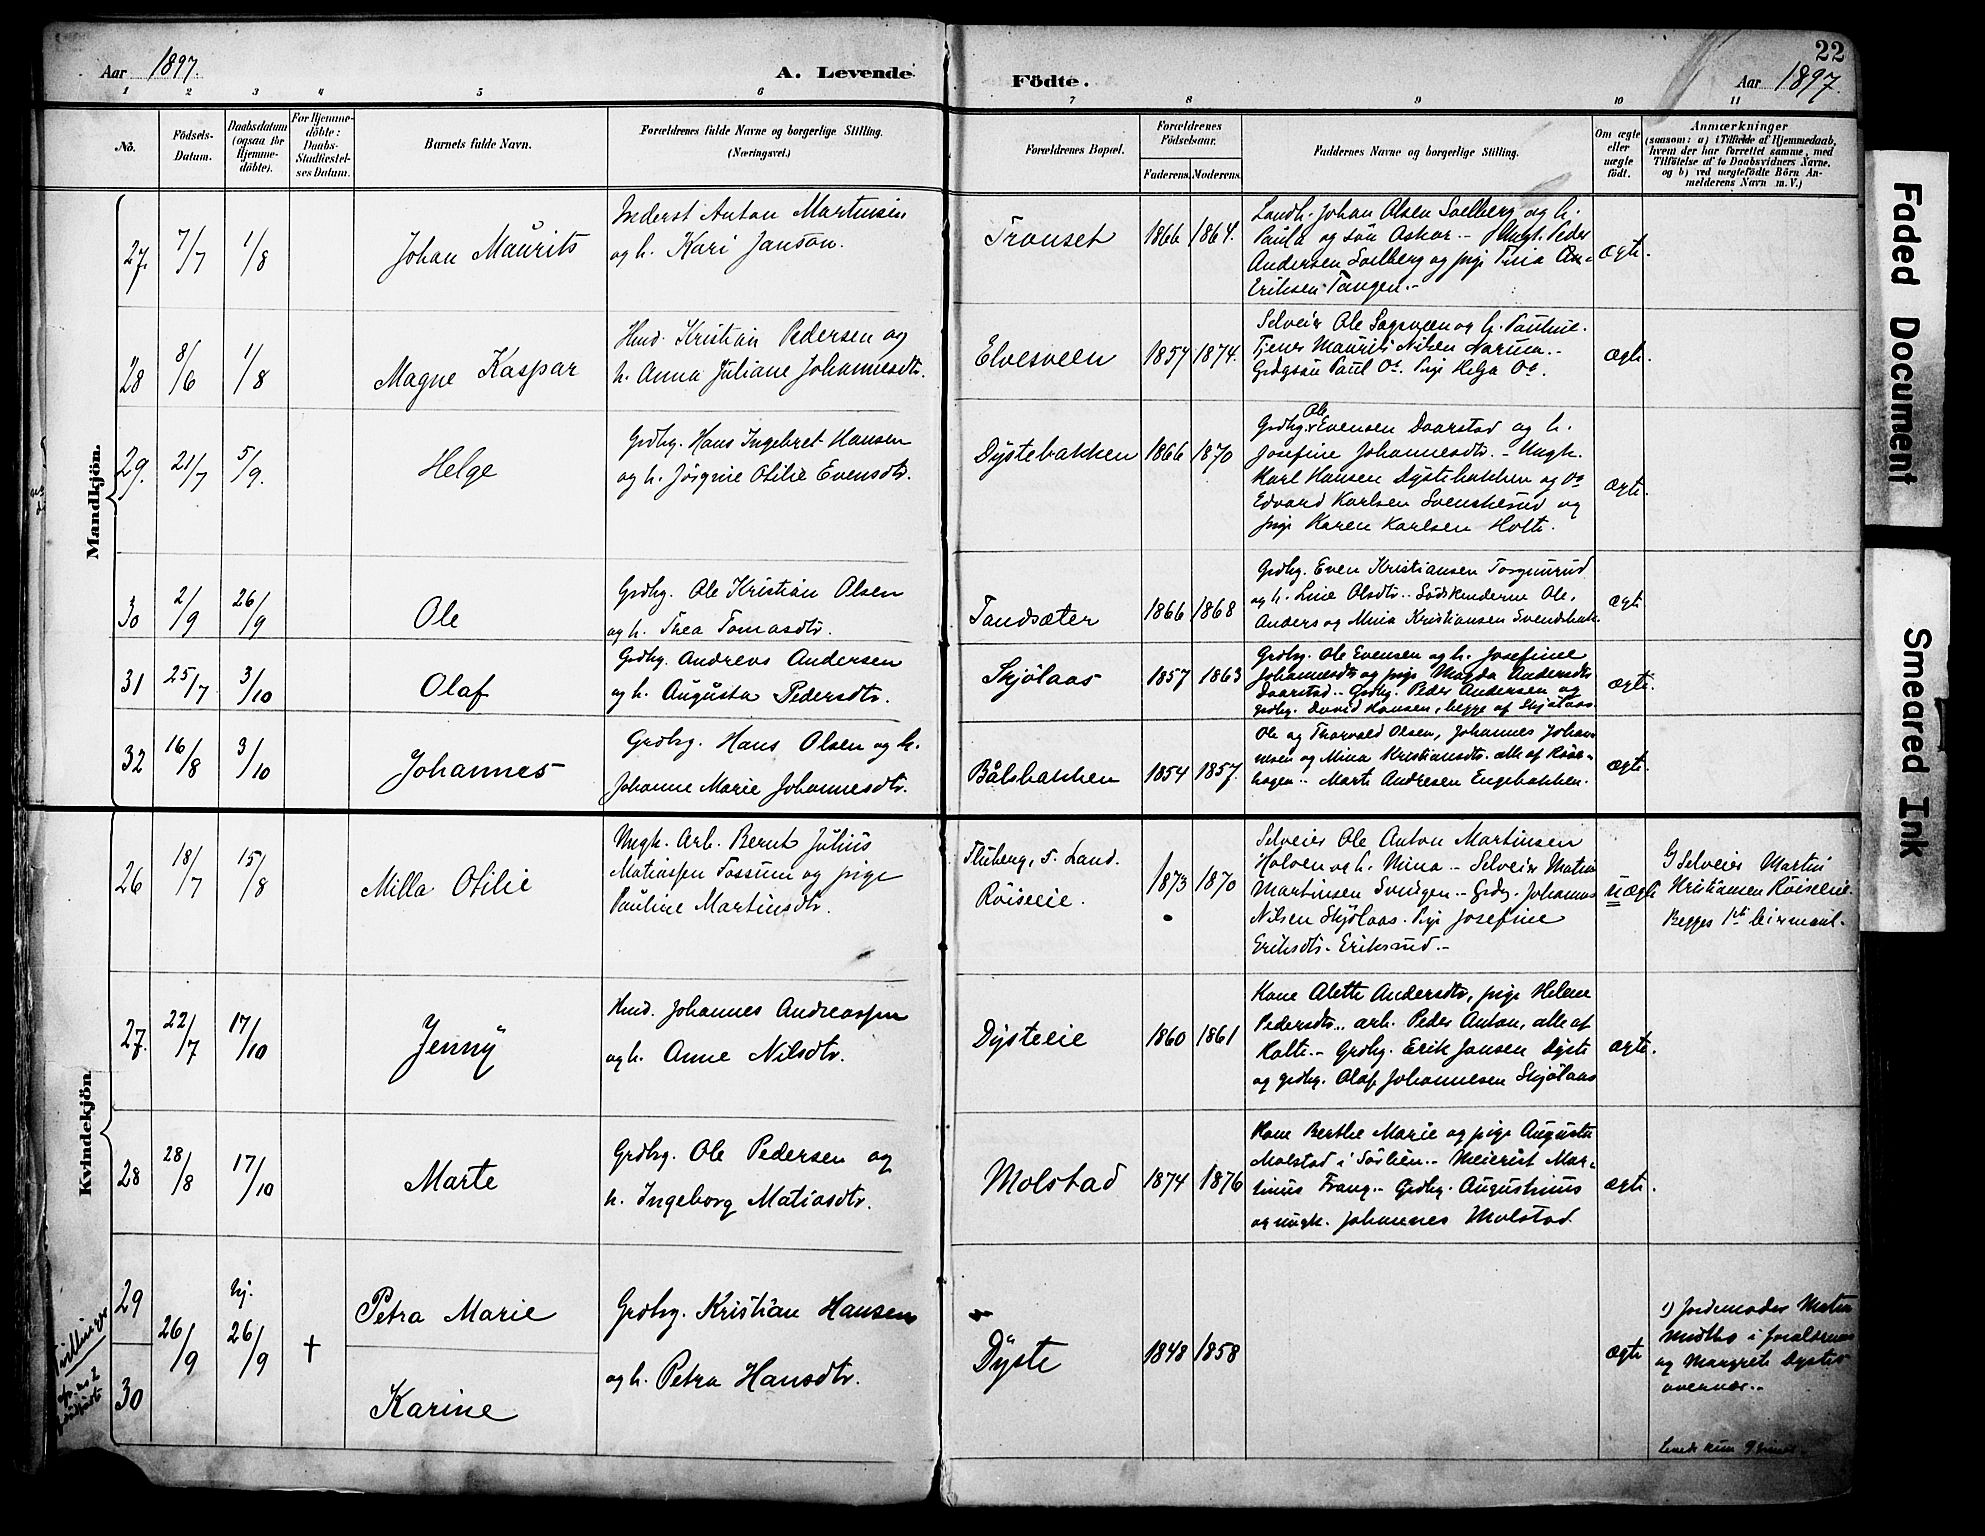 Aar 1897.
A. Levende
Födte.
22
Aar 1897.
1 2 3 4 5 6 7 8 9 10 11
No.
Födsels-
Datum.
Daabsdatum
(ogsaa for
Hjemme-
döbte).
For Hjemme-
döbte:
Daabs-
Stadfæstel-
ses Datum.
Barnets fulde Navn.
Forældrenes fulde Navne og borgerlige Stilling.
(Næringsvei.)
Forældrenes Bopæl.
Forældrenes
Födselsaar.
Faderens. Moderens.
Faddernes Navne og borgerlige Stilling.
Om ægte
eller
uægte
födt.
Anmærkninger
(saasom: a) i Tilfælde af Hjemmedaab,
hvem der har forrettet samme, med
Tilföielse af to Daabsvidners Navne,
og b) ved uægtefödte Börn An-
melderens Navn m. V.)
Mandkjön.
27. 7/7 1/8
Johan Maurits
Inderst Anton Martinsen
og h. Kari Janson.
Tronset
1866 1864.
Landh. Johan Olsen Soelberg og h.
Paula og sön Oskar. - Ungk. Peder
Andersen Soelberg og pige Tina An-
Eriksen Tangen. -
ægte.
28 8/6 1/8
Magne Kaspar
Hmd. Kristian Pedersen og
h. Anna Juliane Johannesdtr.
Elvesveen
1854 1874.
Selveier Ole Sagsveen og h. Pauline.
Tjener Maurits Nilsen Narum. -
Grdgsön Paul Do. Pige Helga Do.
ægte.
29. 21/7 5/9.
Helge
Grdbg. Hans Ingebret Hansen
og h. Jörgine Otilie Evensdtr.
Dystebakken
1866 1870
Ole
Grdbg. Evensen Daarstad og h.
Josefine Johannesdtr. - Ungk.
Karl Hansen Dystebakken og Do
Edvard Karlsen Svenskerud og
pige Karen Karlsen Holte.
ægte.
30 2/9 26/9
Ole
Grdbg. Ole Kristian Olsen
og h. Thea Tomasdtr.
Tandsæter
1866 1868
Grdbg. Even Kristiansen Torgunrud
og h. Line Olsdtr. - Södskenderne Ole,
Anders og Mina Kristiansen Svendsbak.
ægte
31 25/7 3/10
Olaf
Grdbg. Andreas Andersen
og h. Augusta Pedersdtr.
Skjölaas
1857 1863
Grdbg. Ole Evensen og h. Josefine
Johannesdtr og pige Magda Andersdtr
Daarstad. - Grdbg. Peder Andersen og
grdbg. David Hansen, begge af Skjölaas
ægte.
32 16/8 3/10
Johannes
Grdbg. Hans Olsen og h.
Johanne Marie Johannesdtr.
Bålsbakken
1854 1857.
Ole og Thorvald Olsen, Johannes Johan-
nesen og Mina Kristiansdtr. alle af Röse-
hagen. - Marte Andresen Engebakken.
ægte.
Kvindekjön.
26 18/7 15/8
Milla Otilie
Ungk. Arb. Bernt Julius
Matiassen Fossum og pige
Pauline Martinsdtr.
Fluberg, S. Land.
Röiseeie.
1873 1870
Selveier Ole Anton Martinsen
Holven og h. Mina - Selveier Matias
Martinsen Svingen. - Grdbg. Johannes
Nilsen Skjölaas. Pige Josefine
Eriksdtr. Eriksrud. -
uægte
Selveier Martin
Kristiansen Röiseeie.
Begges 1ste leiermaal.
27. 22/7 17/10
Jenny
Hmd. Johannes Andreassen
og h. Anne Nilsdtr.
Dysteeie
1860 1861
Kone Alette Andersdtr, pige Helene
Pedersdtr.. arb. Peder Anton, alle af
Holte. - Grdbg. Erik Jansen Dyste
og grdbg. Olaf Johannesen Skjölaas
ægte.
28 28/8 17/10
Marte
Grdbg. Ole Pedersen og
h. Ingeborg Matiasdtr.
Molstad
1874 1876
Kone Berthe Marie og pige Augusta
Molstad i Sörlien. - Meierist Mar-
tinus Frang. - Grdbg. Augustinus
og ungk. Johannes Molstad
ægte.
29
30
Tvillinger
26/9 hj. 26/9 +
Petra Marie
Karine
Grdbg. Kristian Hansen
og h. Petra Hansdtr.
Dyste
1848 1858
ægte
1) Jordemoder
i forældrenes
og Margrete Dystes
overvær. -
Levede kun 9 timer.
Faded Document
Smeared Ink